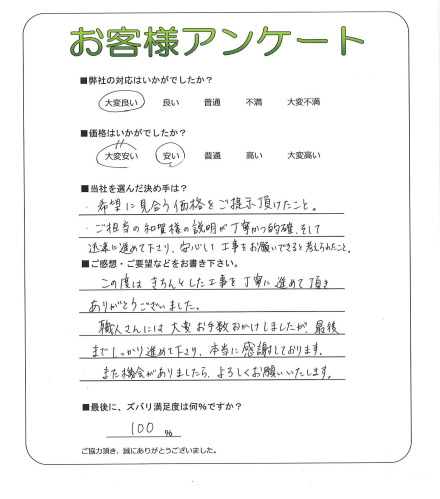 お客様アンケート
■弊社の対応はいかがでしたか？
大変良い 良い 普通 不満 大変不満
■価格はいかがでしたか？
大変安い 安い 普通 高い 大変高い
■当社を選んだ決め手は？
・希望に見合う価格をご提示頂けたこと。
・ご担当の和賀様の説明が丁寧かつ的確、そして
迅速に進めて下さり、安心して工事をお願いできると考えられたこと。
■ご感想・ご要望などをお書き下さい。
この度はきちんとした工事を丁寧に進めて頂き
ありがとうございました。
職人さんには大変お手数おかけしましたが、最後
までしっかり進めて下さり、本当に感謝しております。
また機会がありましたら、よろしくお願いいたします。
■最後に、ズバリ満足度は何%ですか？
100 %
ご協力頂き、誠にありがとうございました。